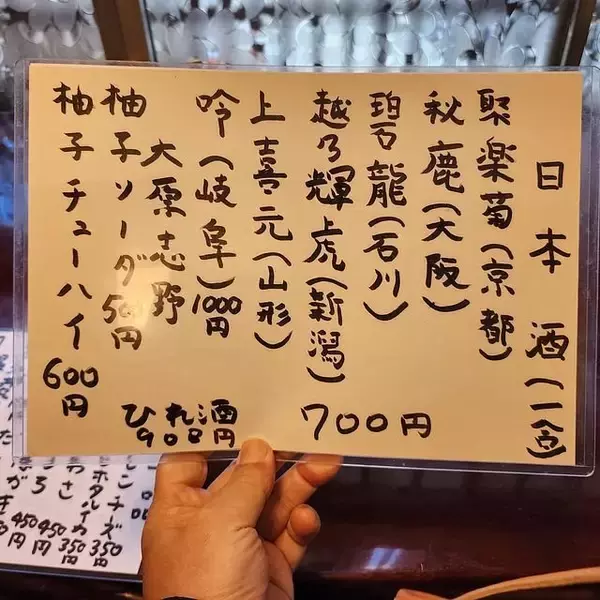 日本酒(一合)
聚楽菊(京都)
秋鹿(大阪)
碧龍(石川)
越乃輝虎(新潟)
上喜元(山形)
700円
吟(岐阜)1000円
大原志野
ひれ酒
908円
柚子ソーダ500円
柚子チューハイ600円
350円
350円
450円
450円